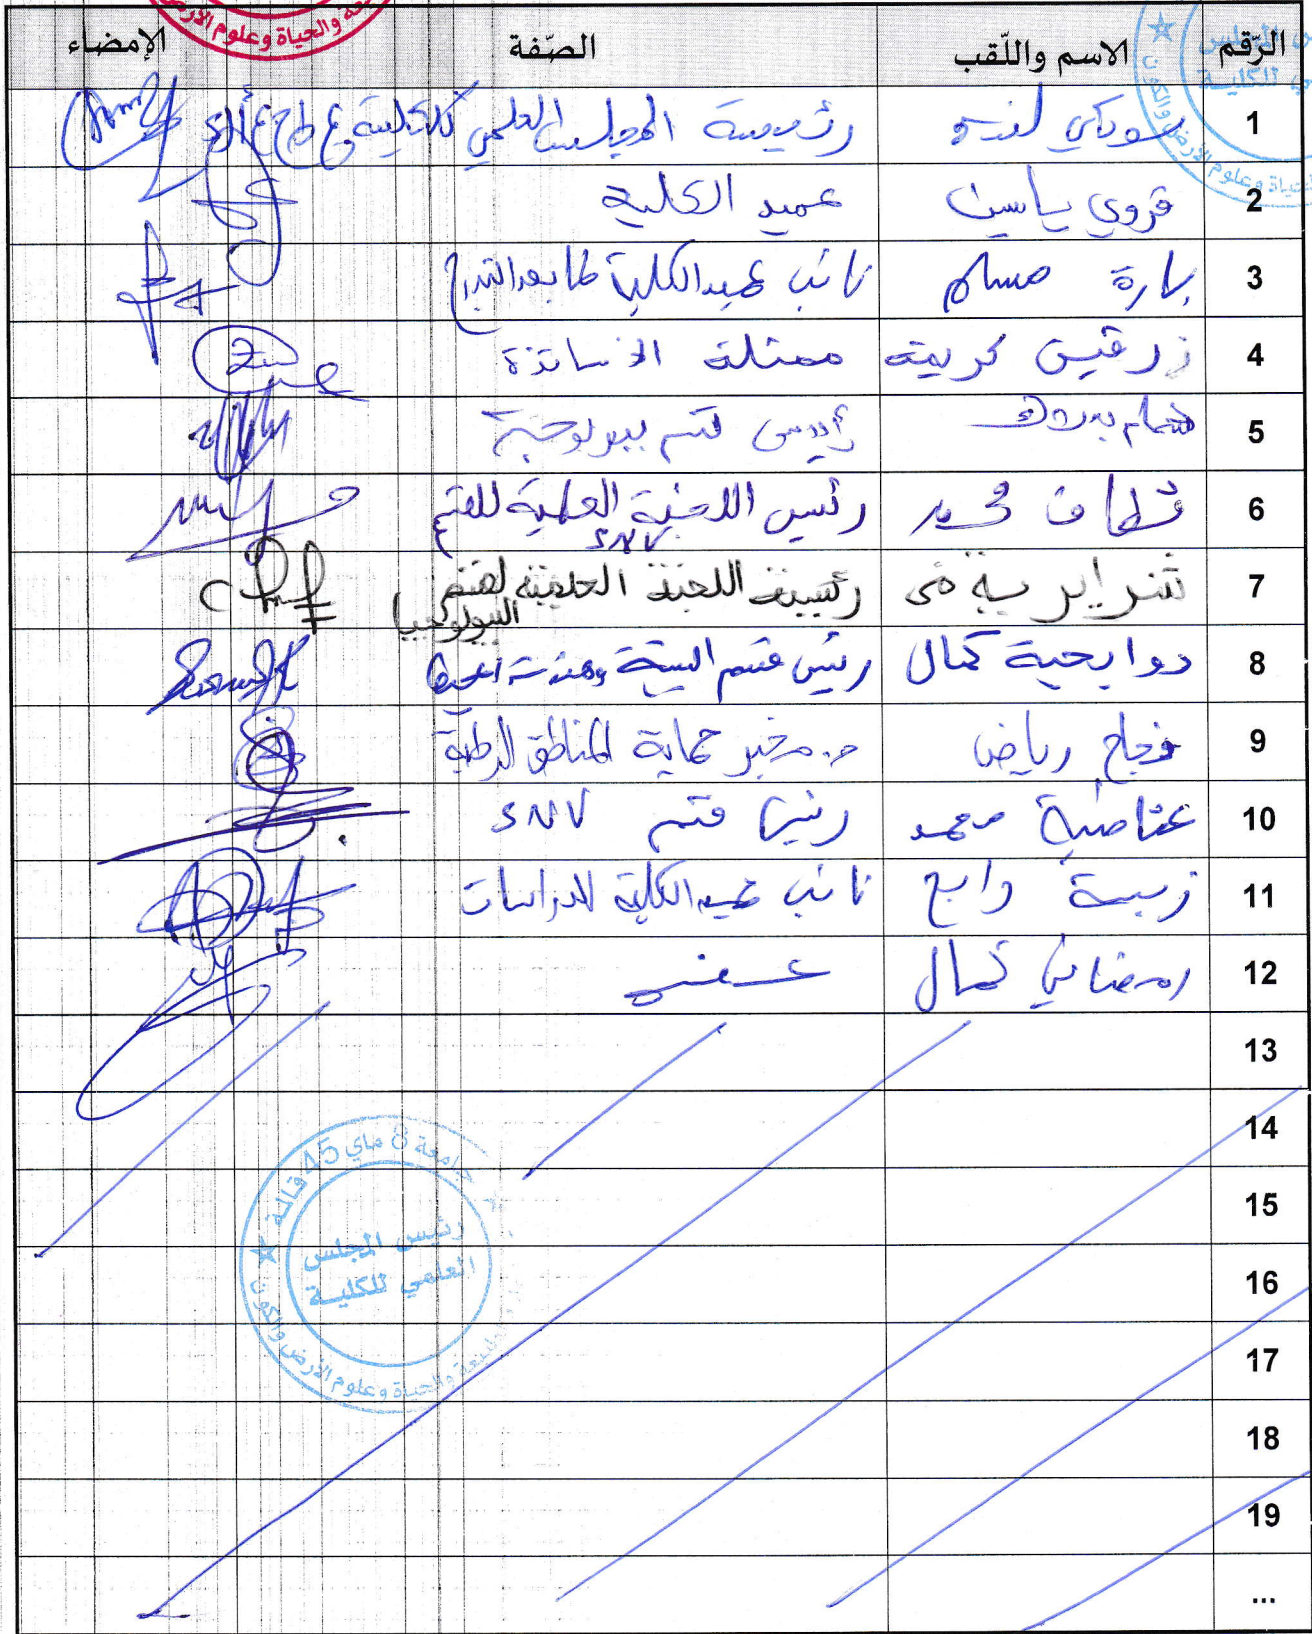 والحياة وعلوم الأرض
الرّقم الاسم واللّقب الصّفة الإمضاء
1 رئيسة المجلس العلمي للكلية
2 قروي ياسين عميد الكلية
3 بارة مسلم نائب عميد الكلية لما بعد التدرج
4 زرقين كريمة ممثلة الأساتذة
5 همام مبروك رئيس قسم بيولوجية
6 محمد رئيس اللجنة العلمية للقسم
SNV
7 رئيسة اللجنة العلمية لقسم
البيولوجيا
8 دوايحية كمال رئيس قسم البيئة وهندسة المحيط
9 رياض مخبر حماية المناطق الرطبة
10 محمد رئيس قسم SNV
11 رابح نائب عميد الكلية للدراسات
12 رمضاني كمال عضو
13
14
15
16
17
18
19
...
جامعة 8 ماي 45 قالمة
رئيس المجلس
العلمي للكلية
والحياة وعلوم الأرض والكون